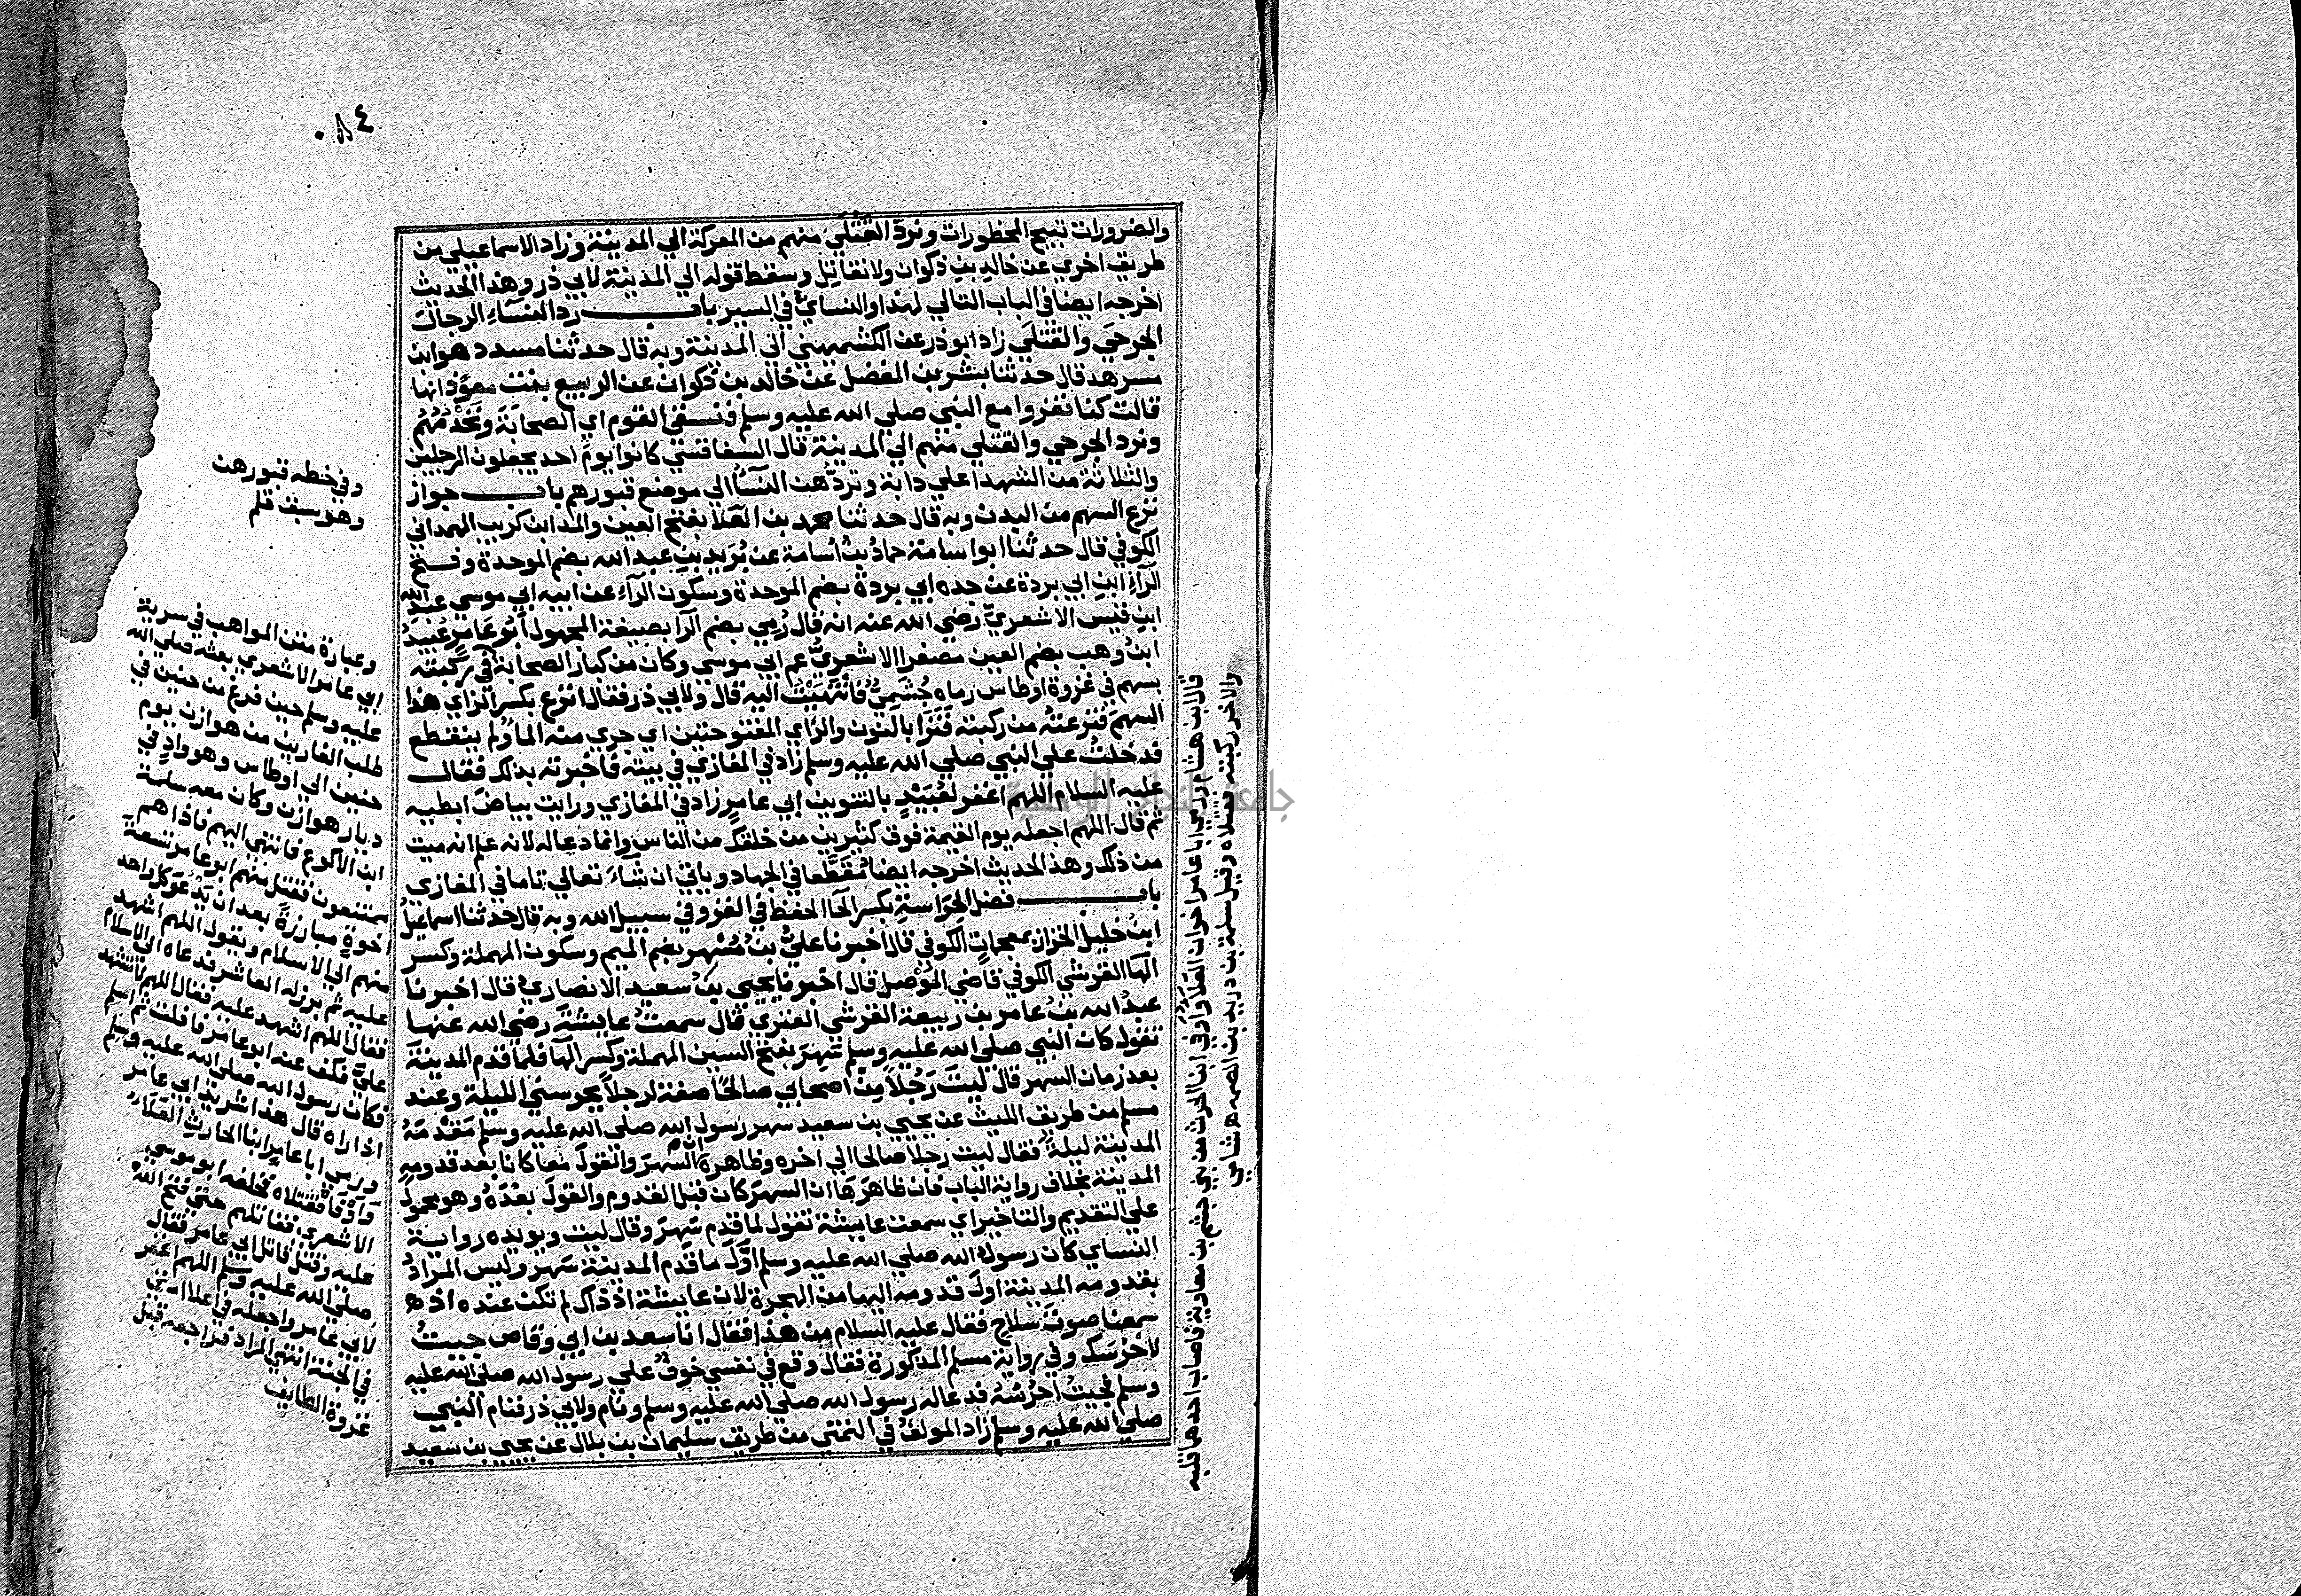 ٠٨٤
والضرورات تبيح المحظورات ونرد القتلي منهم من المعركة الي المدينة وزاد الاسماعيلي من
طريق اخري عن خالد بن ذكوان ولا نقاتل وسقط قوله الي المدينة لابي ذر وهذا الحديث
اخرجه ايضا في الباب التالي لهذا والنسائي في السير باب رد النساء الرجال
الجرحي والقتلي زاد ابو ذر عن الكشميهني الي المدينة وبه قال حدثنا مسدد هو ابن
مسرهد قال حدثنا بشر بن المفضل عن خالد بن ذكوان عن الربيع بنت معوذ انها
قالت كنا نغزوا مع النبي صلي الله عليه وسلم فنسقي القوم اي الصحابة ونخدمهم
ونرد الجرحي والقتلي منهم الي المدينة قال السفاقسي كانوا يوم احد يجعلون الرجلين
والثلاثة من الشهدا علي دابة وتردهن النسا الي موضع قبورهم باب جواز
نزع السهم من البدن وبه قال حدثنا محمد بن العلا بفتح العين والمد ابن كريب الهمداني
الكوفي قال حدثنا ابو اسامة حماد بن اسامة عن بريد بن عبد الله بضم الموحدة وفتح
الراء ابن ابي بردة عن جده ابي بردة بضم الموحدة وسكون الراء عن ابيه ابي موسي عبد الله
ابن قيس الاشعري رضي الله عنه انه قال رمي بضم الرا بصيغة المجهول ابو عامر عبيد
ابن وهب بضم العين مصغرا الاشعري عم ابي موسي وكان من كبار الصحابة في ركبته
بسهم في غزوة اوطاس رماه جشمي فانتهيت اليه قال ولابي ذر فقال انزع بكسر الزاي هذا
السهم فنزعته من ركبته فنزا بالنون والزاي المفتوحتين اي جري منه الما ولم ينقطع
فدخلت علي النبي صلي الله عليه وسلم زاد في المغازي في بيته فاخبرته بذلك فقال
عليه السلام اللهم اغفر لعبيد بالتنوين ابي عامر زاد في المغازي ورايت بياض ابطيه
ثم قال اللهم اجعله يوم القيمة فوق كثيرين من خلقك من الناس وانما دعا له لانه علم انه ميت
من ذلك وهذا الحديث اخرجه ايضا مقطعا في الجهاد وياتي ان شاء تعالي تاما في المغازي
باب فضل الحراسة بكسر الحا الحفظ في الغزو في سبيل الله وبه قال حدثنا اسماعيل
ابن خليل الخزاز بمعجمات الكوفي قال اخبرنا علي بن مسهر بضم الميم وسكون المهملة وكسر
الها القرشي الكوفي قاضي الموصل قال اخبرنا يحيي بن سعيد الانصاري قال اخبرنا
عبد الله بن عامر بن ربيعة القرشي العنزي قال سمعت عايشة رضي الله عنها
تقول كان النبي صلي الله عليه وسلم سهر بفتح السين المهملة وكسر الها فلما قدم المدينة
بعد زمان السهر قال ليت رجلا من اصحابي صالحا صفة لرجلا يحرسني الليلة وعند
مسلم من طريق الليث عن يحيي بن سعيد سهر رسول الله صلي الله عليه وسلم مقدمه
المدينة ليلة فقال ليت رجلا صالحا الي اخره وظاهره ان السهر والقول معا كانا بعد قدومه
المدينة بخلاف رواية الباب فان ظاهرها ان السهر كان قبل القدوم والقول بعده وهو محمول
علي التقديم والتاخير اي سمعت عايشة تقول لما قدم سهر وقال ليت ويويده رواية
النساي كان رسول الله صلي الله عليه وسلم اول ما قدم المدينة سهر وليس المراد
بقدومه المدينة اول قدومه اليها من الهجرة لان عايشة اذ ذاك لم تكن عنده اذ
سمعنا صوت سلاح فقال عليه السلام من هذا فقال انا سعد بن ابي وقاص جيت
لاحرسك وفي رواية مسلم المذكورة فقال وقع في نفسي خوف علي رسول الله صلي الله عليه
وسلم فجيت احرسه فدعا له رسول الله صلي الله عليه وسلم ونام ولابي ذر فنام النبي
صلي الله عليه وسلم زاد المولف في التمني من طريق سليمان بن بلال عن يحيي بن سعيد
وفي خطه قبورهن
وهو سبق قلم
وعبارة متن المواهب في سرية
ابي عامر الاشعري بعثه صلي الله
عليه وسلم حين فرغ من حنين في
طلب الفارين من هوازن يوم
حنين الي اوطاس وهو واد في
ديار هوازن وكان معه سلمة
ابن الاكوع فانتهي اليهم فاذا هم
ممتنعون فقتل منهم ابو عامر تسعة
اخوة مبارزة بعد ان يدعو كل واحد
منهم الي الاسلام ويقول اللهم اشهد
عليه ثم برز له العاشر فدعاه الي الاسلام
فقال اللهم اشهد عليه فقال اللهم لا تشهد
علي فكف عنه ابو عامر فافلت ثم اسلم
فكان رسول الله صلي الله عليه وسلم
اذا راه قال هذا شريد ابي عامر
ورمي ابا عامر ابنا الحارث العلاء
واوفا فقتلاه فخلفه ابو موسي
الاشعري فقاتلهم حتي فتح الله
عليه وقتل قاتل ابي عامر فقال
صلي الله عليه وسلم اللهم اغفر
لابي عامر واجعله في اعلا امتي
في الجنة انتهي المراد فراجعه قبل
غزوة الطايف
قال ابن هشام ورمي ابا عامر اخوان العلا واوفي ابنا الحرث من بني جشم بن معاوية فاصاب احدهما قلبه
والاخر ركبته فقتلاه وقيل سلمة بن دريد بن الصمه هشامي
جامعة النجاح الوطنية